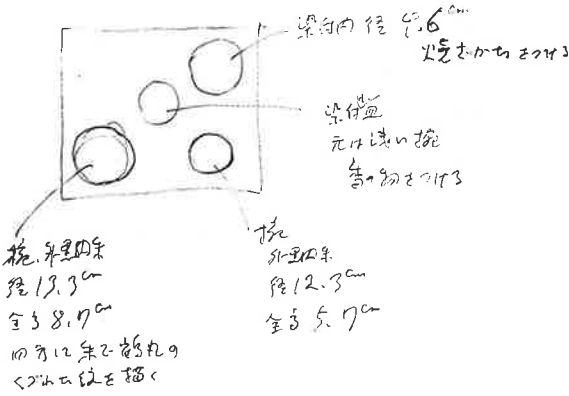 染付内 径 15.6cm
焼ざかなをつける
染付皿
元は浅い椀
香の物をつける
椀、外黒内朱
径13.3cm
全高8.7cm
四方に朱で鶴丸の
くづれた紋を描く
椀
外黒内朱
径12.3cm
全高5.7cm